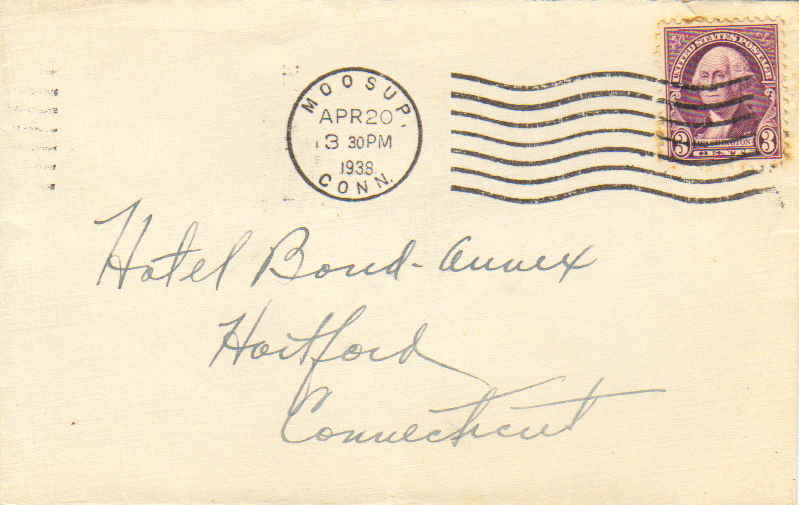 MOOSUP.
APR 20
3 30 PM
1938
CONN.
UNITED STATES POSTAGE
3 WASHINGTON 3
CENTS
Hotel Bond-Annex
Hartford
Connecticut